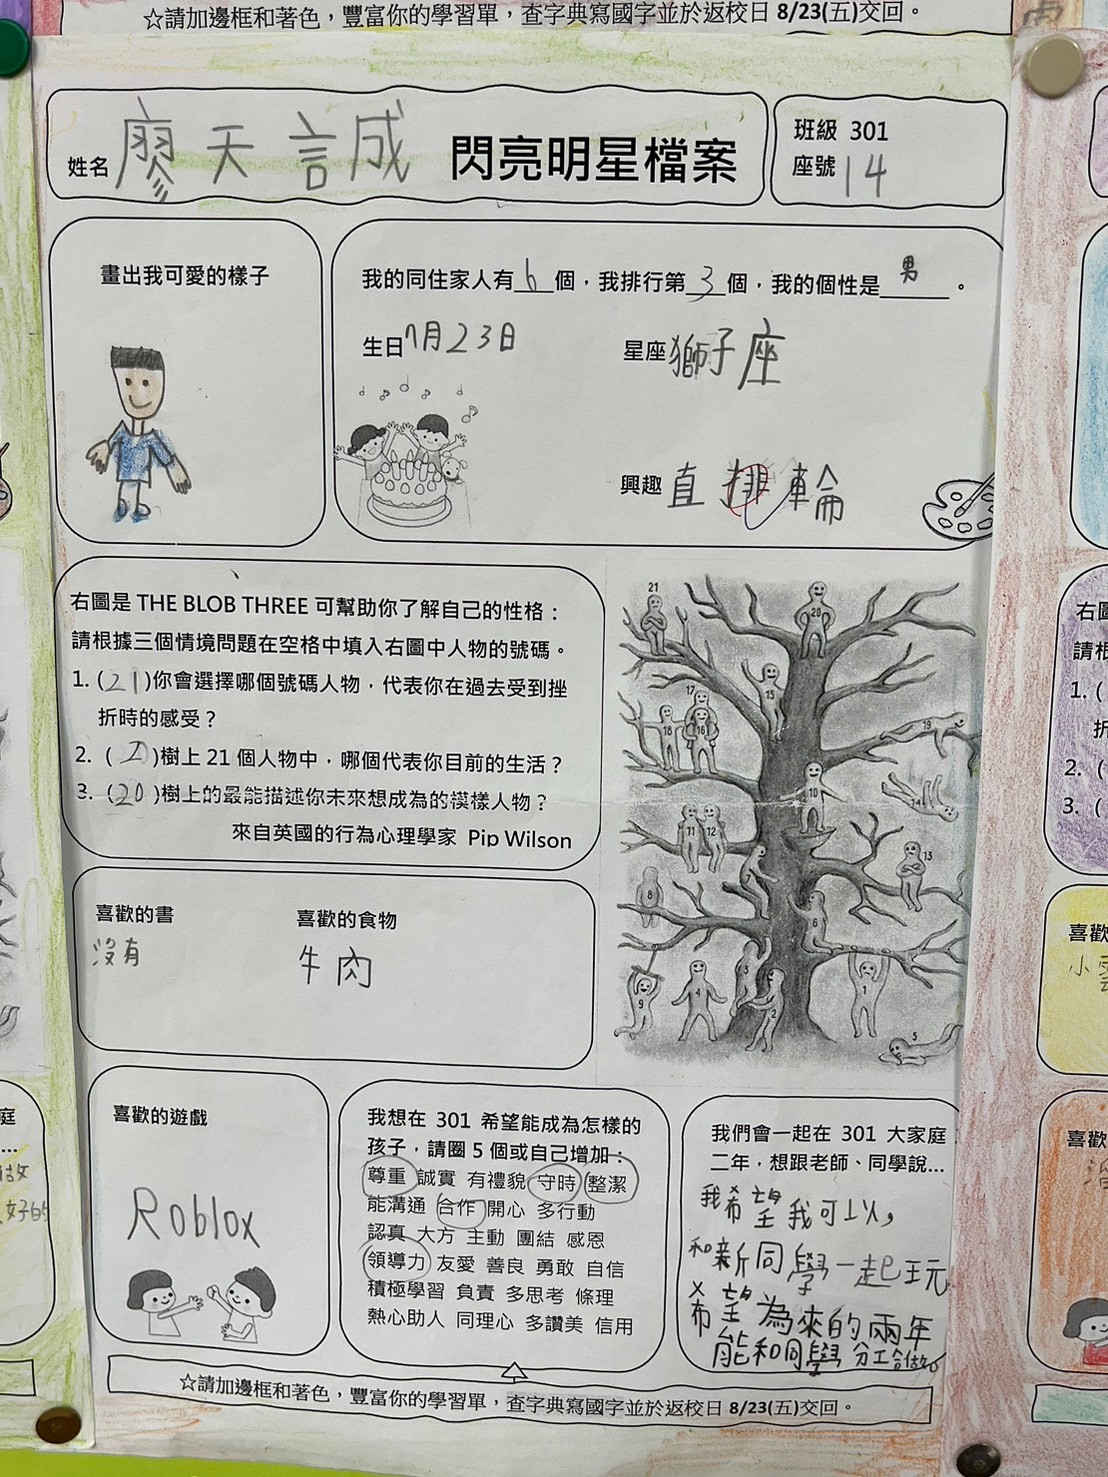 ☆請加邊框和著色，豐富你的學習單，查字典寫國字並於返校日 8/23(五)交回。
姓名 廖天誠 閃亮明星檔案
班級 301
座號 14
畫出我可愛的樣子
我的同住家人有 6 個，我排行第 3 個，我的個性是 男 。
生日 7月23日
星座 獅子座
興趣 直排輪
右圖是 THE BLOB THREE 可幫助你了解自己的性格：
請根據三個情境問題在空格中填入右圖中人物的號碼。
1. (21)你會選擇哪個號碼人物，代表你在過去受到挫
折時的感受？
2. ( 2 )樹上 21 個人物中，哪個代表你目前的生活？
3. (20 )樹上的最能描述你未來想成為的模樣人物？
來自英國的行為心理學家 Pip Wilson
21
20
17
15
18
16
19
10
11
12
13
7
8
6
3
9
4
2
1
5
喜歡的書
沒有
喜歡的食物
牛肉
喜歡的遊戲
Roblox
我想在 301 希望能成為怎樣的
孩子，請圈 5 個或自己增加：
尊重 誠實 有禮貌 守時 整潔
能溝通 合作 開心 多行動
認真 大方 主動 團結 感恩
領導力 友愛 善良 勇敢 自信
積極學習 負責 多思考 條理
熱心助人 同理心 多讚美 信用
我們會一起在 301 大家庭
二年，想跟老師、同學說...
我希望我可以，
和新同學一起玩
希望為來的兩年
能和同學分工合做。
☆請加邊框和著色，豐富你的學習單，查字典寫國字並於返校日 8/23(五)交回。
右圖
請根
1. (
折
2. (
3. (
喜歡
小
喜歡
庭
...
做
好的